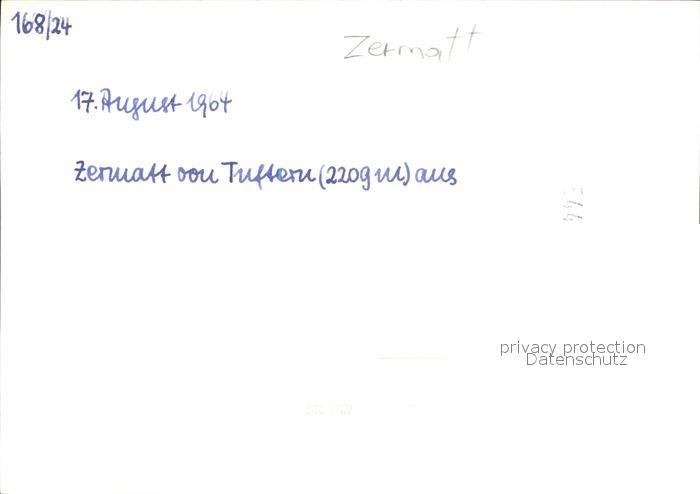 168/24
Zermatt
17. August 1964
Zermatt von Tuftern (2209 m) aus
privacy protection
Datenschutz